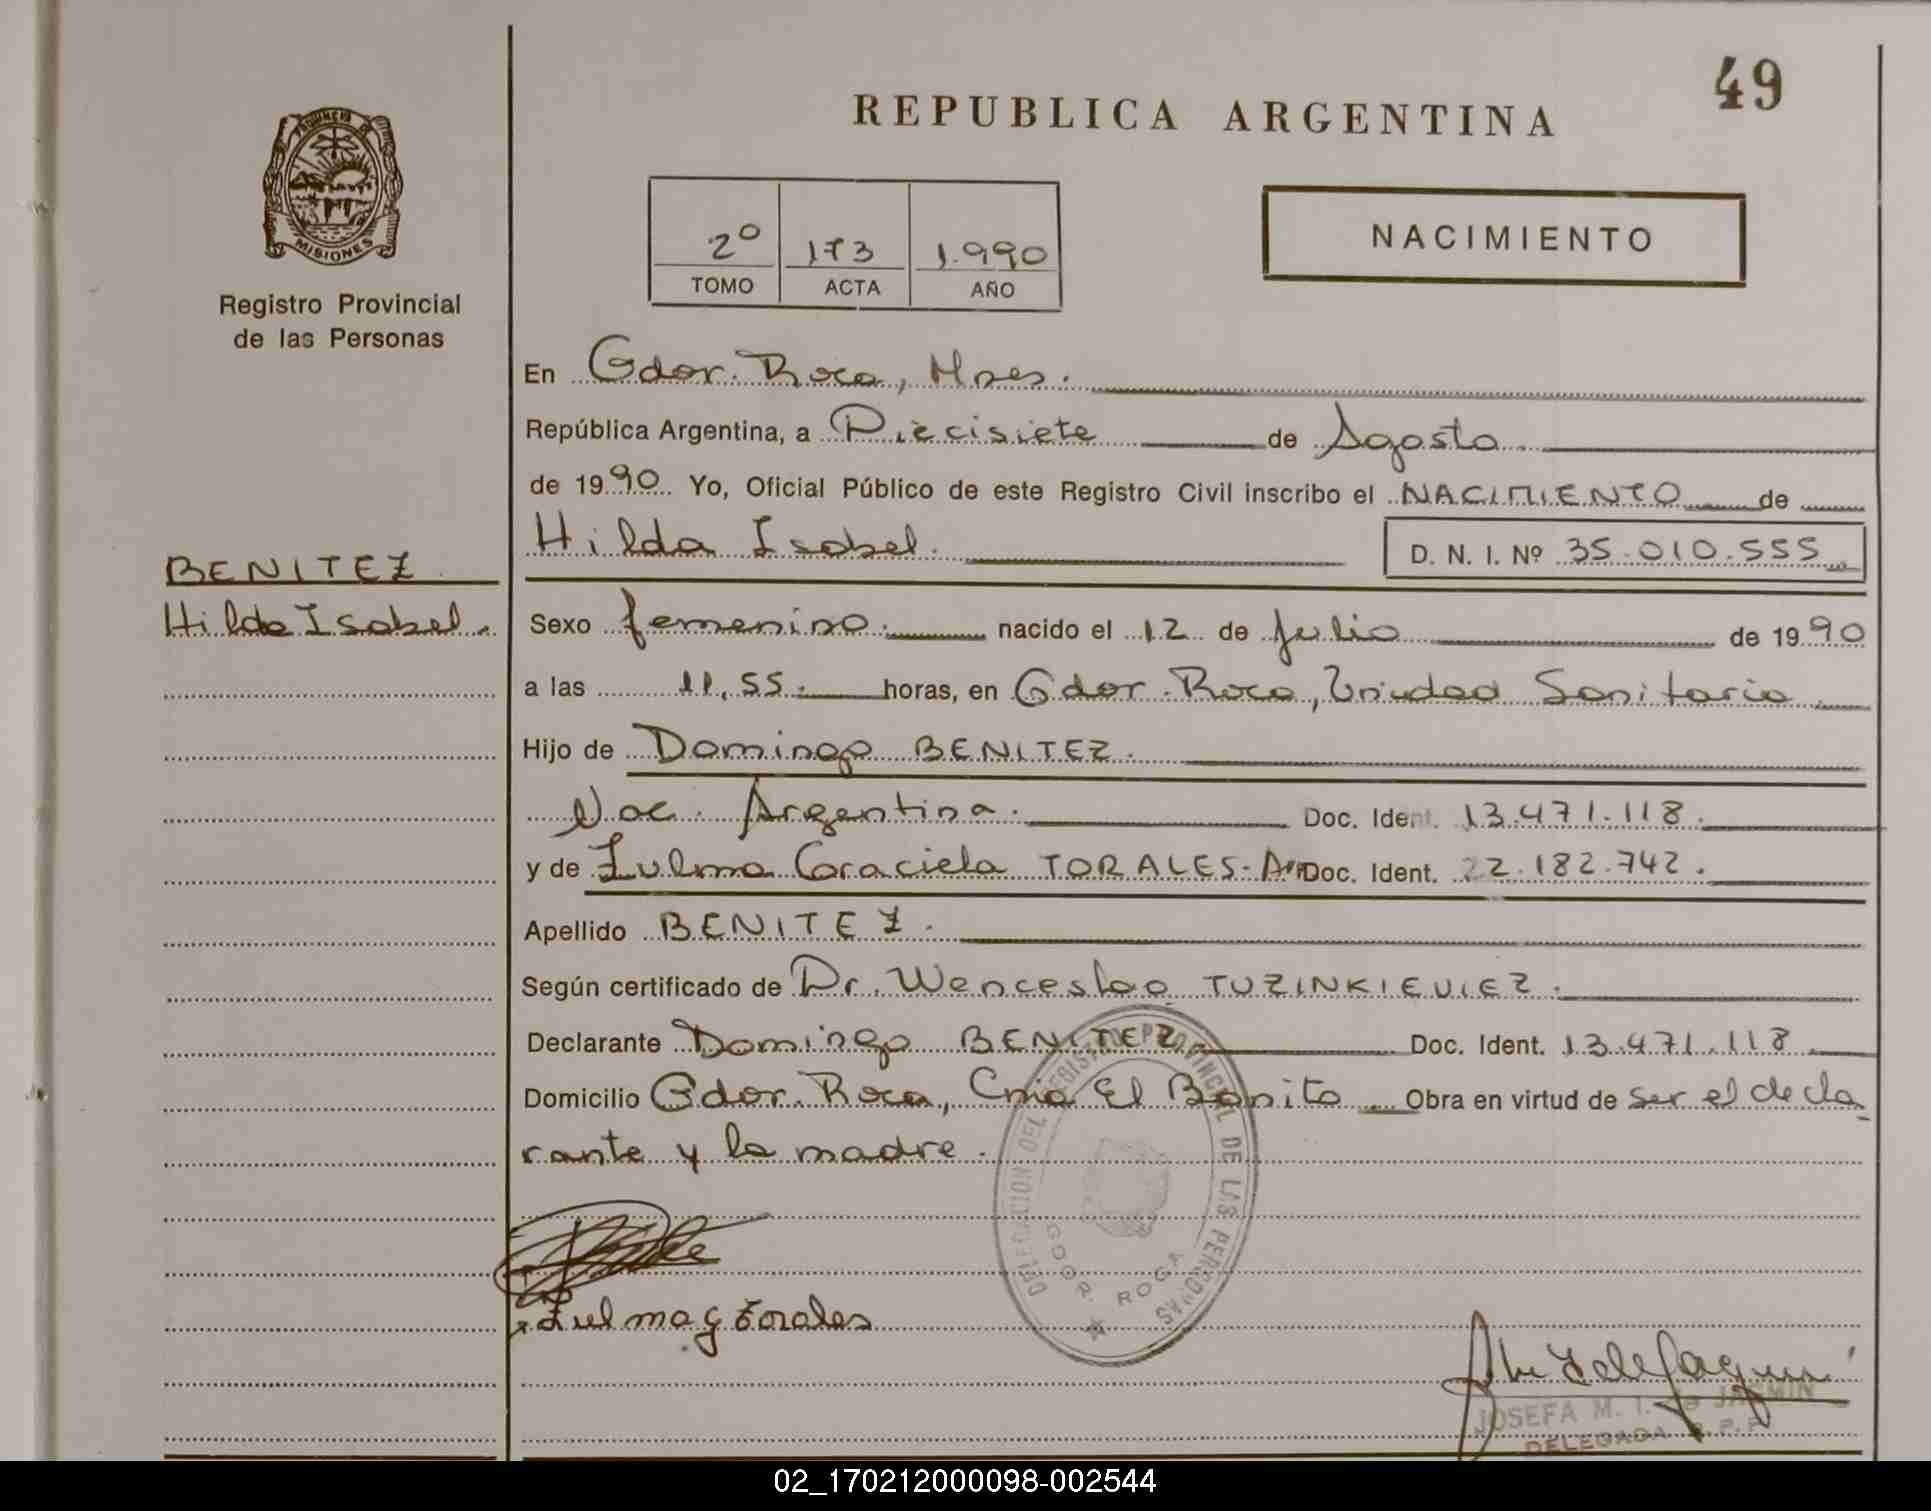 49
REPUBLICA ARGENTINA
PROVINCIA DE
MISIONES
Registro Provincial
de las Personas
2º 173 1.990
TOMO ACTA AÑO
NACIMIENTO
En Gdor. Roca, Mnes.
República Argentina, a Diecisiete de Agosto
de 1990 Yo, Oficial Público de este Registro Civil inscribo el NACIMIENTO de
Hilda Isabel. D. N. I. Nº 35.010.555
BENITEZ
Hilda Isabel.
Sexo femenino. nacido el 12 de Julio de 1990
a las 11,55. horas, en Gdor. Roca, Unidad Sanitaria
Hijo de Domingo BENITEZ.
Nac. Argentina. Doc. Ident. 13.471.118.
y de Zulma Graciela TORALES- Doc. Ident. 22.182.742.
Apellido BENITEZ.
Según certificado de Dr. Wenceslao TUZINKIEVIEZ.
Declarante Domingo BENITEZ. Doc. Ident. 13.471.118
Domicilio Gdor. Roca, Cnia El Bonito. Obra en virtud de ser el decla-
rante y la madre.
DELEGACION DEL REGISTRO PROVINCIAL DE LAS PERSONAS
GDOR. ROCA
Zulma G Torales
JOSEFA M. I. de
DELEGADA R.P.P.
02_170212000098-002544